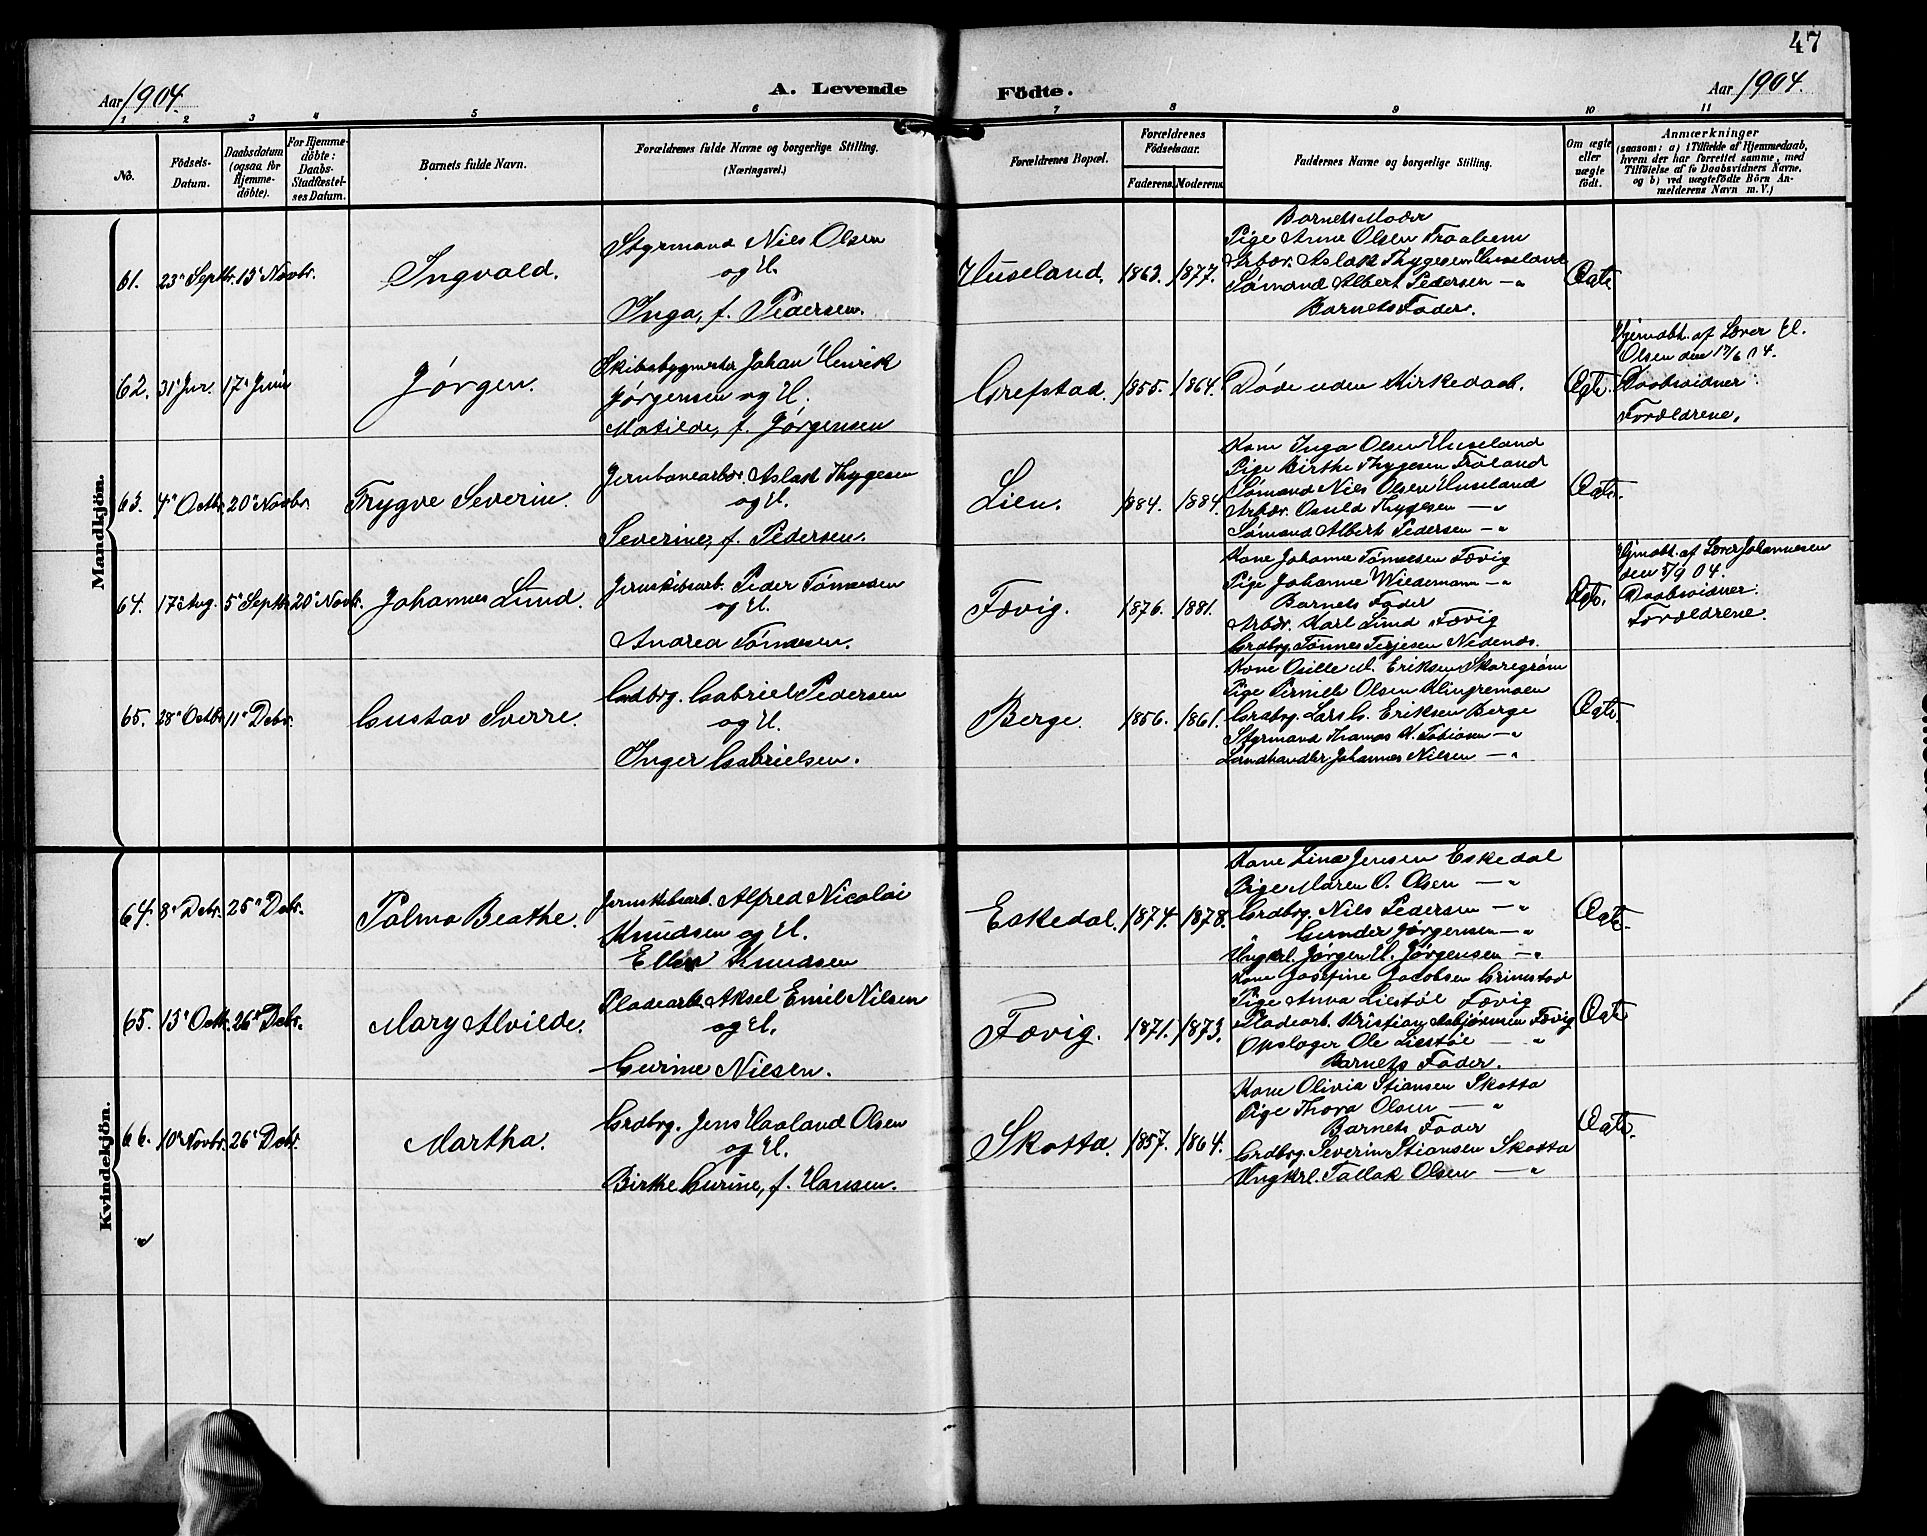 47
Aar 1904.
A. Levende
Födte.
Aar 1904.
1 2 3 4 5 6 7 8 9 10 11
No.
Födsels-Datum.
Daabsdatum (ogsaa for Hjemme-döbte).
For Hjemme-döbte: Daabs-Stadfæstel-ses Datum.
Barnets fulde Navn.
Forældrenes fulde Navne og borgerlige Stilling. (Næringsvei.)
Forældrenes Bopæl.
Forældrenes Födselsaar.
Faderens.
Moderens.
Faddernes Navne og borgerlige Stilling.
Om ægte eller uægte födt.
Anmærkninger
(saasom: a) i Tilfælde af Hjemmedaab, hvem der har forrettet samme, med Tilföielse af to Daabsvidners Navne, og b) ved uægtefödte Börn An-melderens Navn m. V.)
Mandkjön.
61. 23' Septbr. 13' Novbr. Ingvald.
Styrmand Niels Olsen
og H.
Inga, f. Pedersen.
Huseland. 1863. 1877.
Barnets Moder
Pige Anne Olsen
Arbdr. Aslak Thygesen Huseland
Sømand Albert Pedersen — "
Barnets Fader.
Ægte.
62. 31' Jnr. 17' Juni Jørgen.
Skibsbygmester Johan Henrik
Jørgensen og H.
Matilde, f. Jørgensen
Grefstad. 1855. 1864. Døde uden Kirkedaab. Ægte.
Hjemdbt. af Lærer H.
Olsen den 17/6 04.
Daabsvidner:
Forældrene.
63. 4' Octbr. 20' Novbr. Trygve Severin.
Jernbanearbdr. Aslak Thygesen
og H.
Severine, f. Pedersen.
Lien. 1884. 1884.
Kone Inga Olsen Huseland
Pige Birthe Thygesen Froland
Sømand Niels Olsen Huseland
Arbdr. Osuld Thygesen — "
Sømand Albert Pedersen — "
Ægte.
64. 17' Aug. 5' Septbr. 20' Novbr. Johannes Lund.
Jernskibsarb. Peder Tønnesen
og H.
Andrea Tønnesen.
Fævig. 1876. 1881.
Kone Johanne Tønnesen Fævig
Pige Johanne Wiedemann — "
Barnets Fader
Arbdr. Karl Lund Fævig
Grdbrg. Tønnes Terjesen Nedenæs.
Ægte.
Hjmdbt. af Lærer Johannesen
den 5/9 04.
Daabsvidner:
Forældrene.
65. 28' Octbr. 11' Debr. Gustav Sverre.
Grdbrg. Gabriel Pedersen
og H.
Inger Gabrielsen.
Berge. 1856. 1861.
Kone Osille M. Eriksen
Pige Pernille Olsen Klingremoen
Grdbrg. Lars G. Eriksen Berge
Styrmand Thomas K. Tobiasen — "
Landhandler Johannes Nilsen — "
Ægte.
Kvindekjön.
64. 8' Debr. 25' Debr. Palma Beathe.
Jernskibsarb. Alfred Nicolai
Knudsen og H.
Ellen Knudsen
Eskedal. 1874. 1878.
Kone Lina Jensen Eskedal
Pige Maren O. Olsen — "
Grdbrg. Nils Pedersen — "
Gunder Jørgensen — "
Ungkrl. Jørgen H. Jørgensen — "
Ægte.
65. 13' Octbr. 26' Debr. Mary Alvilde.
Pladearb. Aksel Emil Nilsen
og H.
Gurine Nilsen.
Fævig. 1871. 1873.
Kone Josefine Jacobsen Grimstad
Pige Anna Liestøl Fævig
Pladearb. Kristian Asbjørnsen Fævig
Opslager Ole Liestøl — "
Barnets Fader.
Ægte
66. 10' Novbr. 26' Debr. Martha.
Grdbrg. Jens Haaland Olsen
og H.
Birthe Gurine, f. Hansen.
Skotta. 1857. 1864.
Kone Olivia Stiansen Skotta
Pige Thora Olsen — "
Barnets Fader
Grdbrg. Severin Stiansen Skotta
Ungkrl. Tallak Olsen — "
Ægte.